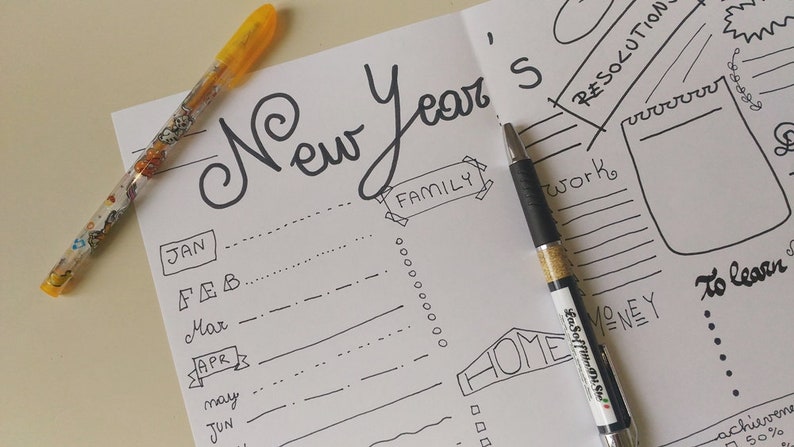 New Year's
RESOLUTIONS
FAMILY
work
JAN
FEB
Mar
APR
may
JUN
HOME
MONEY
To learn
achieveme
50%